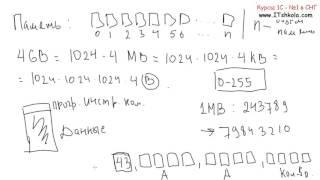 Курсы 1С - №1 в СНГ
www.ITshkola.com
Память:
0 1 2 3 4 5 6 ... n
n -
4GB = 1024·4 MB = 1024·1024·4 kB =
= 1024·1024·1024·4 B
0-255
проф. инстр. кол.
Данные
1MB: 243789
→ 79843210
43,
А , Д , кол-во.